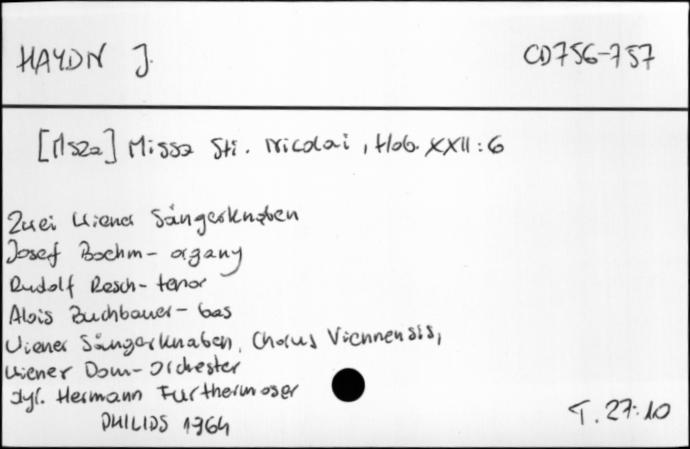 HAYDN J.
CD756-757
[Msza] Missa Sti. Nicolai, Hob. XXII:6
Zwei Wiener Sängerknaben
Josef Boehm - organy
Rudolf Resch - tenor
Alois Buchbauer - bas
Wiener Sängerknaben, Chorus Viennensis,
Wiener Dom-Orchester
dyr. Hermann Furthermoser
PHILIPS 1964
T. 27:10